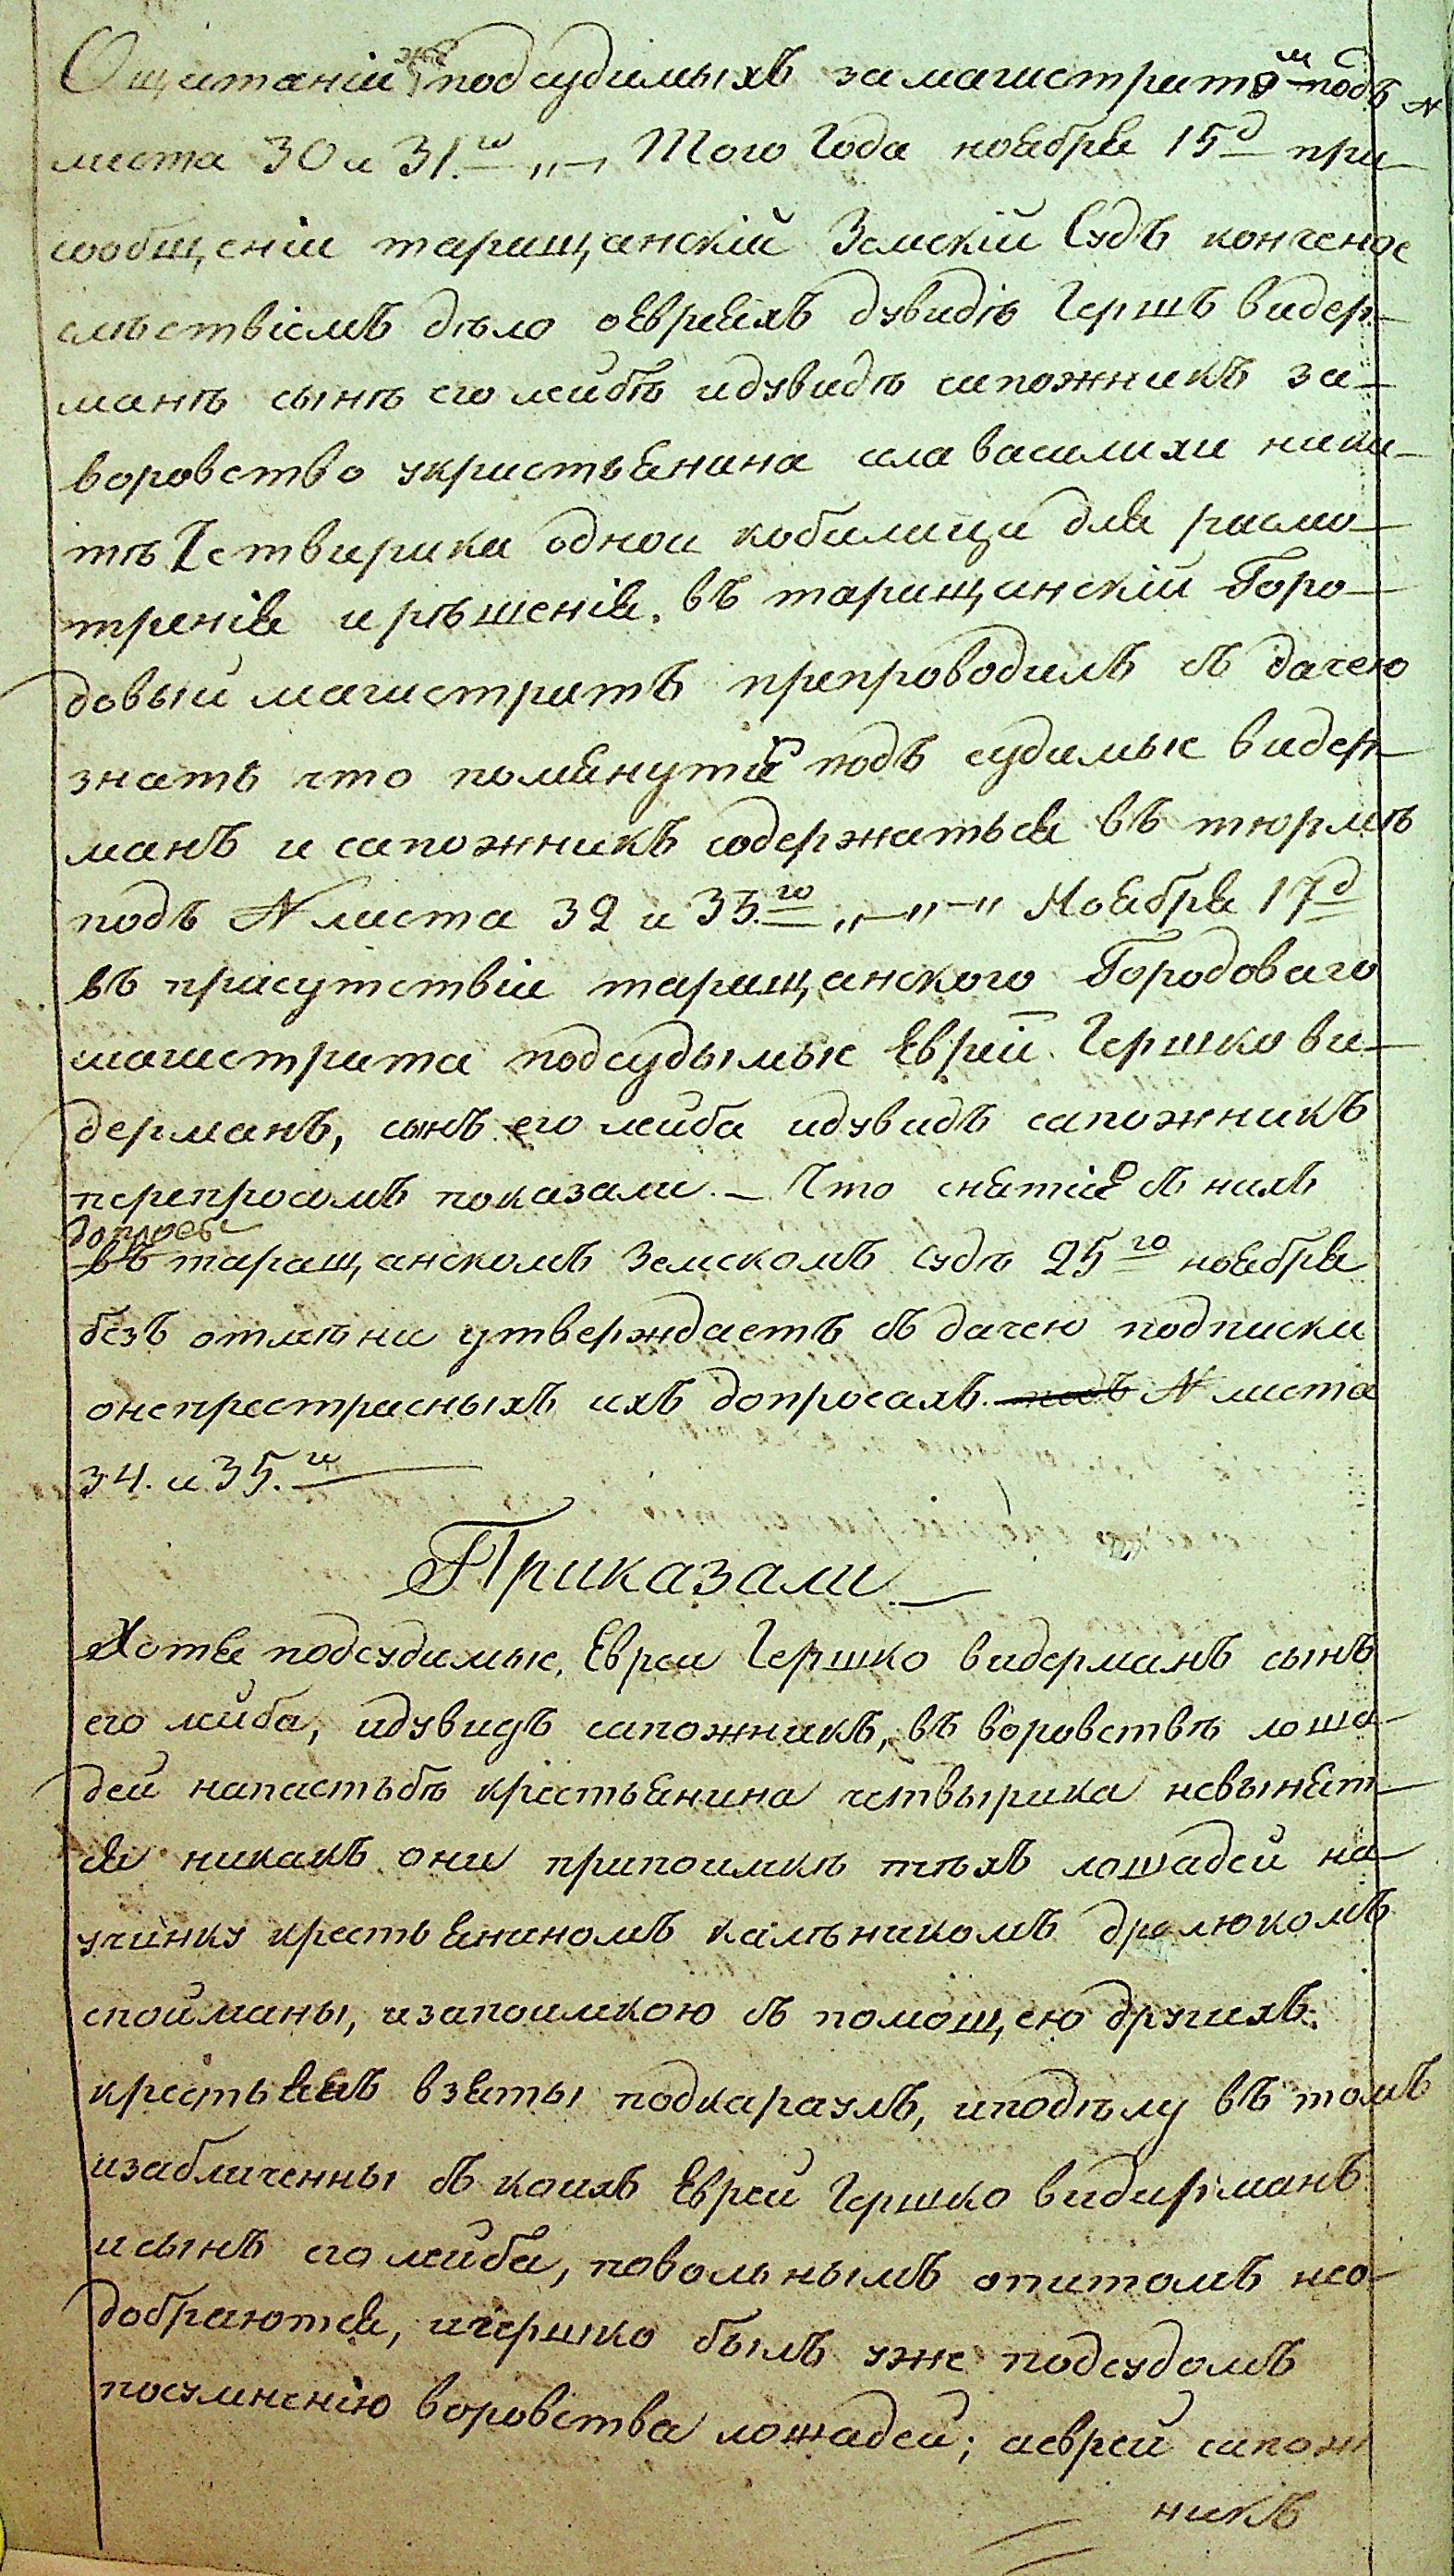 Ощитаніи же подсудимыхъ за магистратомъ подъ N
листа 30 и 31.го „— Того Года ноября 15д при
сообщеніи таращанскій Земскій Судъ конченое
слѣствіемъ дѣло оевреяхъ дувидѣ Гершъ видер-
манѣ сынѣ его лейбѣ идувидѣ сапожникѣ за-
воровство укристьянина села василихи ники-
ты Четвирика одной кобилици для расмо-
тренія ирѣшенія. въ таращанскій Горо-
довый магистратъ препроводилъ съ дачею
знать что помянутіе подъ судимые видер-
манъ и сапожникъ содержаться въ тюрмѣ
подъ N листа 32 и 33.го „—„—„ Ноября 17д
въ присутствіи таращанского Городоваго
магистрата подсудымые Евреи Гершко ви-
дерманъ, сынъ его лейба идувидъ сапожникъ
перепросомъ показали. — Что снятіе съ нихъ
допросы
въ таращанскомъ Земскомъ судѣ 25го ноября
безъ отмѣни утверждаетъ съ дачею подписки
онепрестрасныхъ ихъ допросахъ. подъ N листа
34. и 35.го
Приказали
Хотя подсудимые, Евреи Гершко видерманъ сынъ
его лейба, идувидъ сапожникъ, въ воровствѣ лоша-
дей напастьбѣ крестьянина четвырика невынят-
ся никакъ они припоимкѣ тѣхъ лошадей на
учинку крестьяниномъ калѣникомъ дралюкомъ
спойманы, изапоимкою съ помощею другихъ
крестьянъ взяты подкараулъ, иподѣлу въ томъ
изабличенны съ коихъ Еврей Гершко видирманъ
исынъ его лейба, повольнымъ опитомъ нео-
добраются, игершко былъ уже подсудомъ
посумненію воровства лошадей; аеврей сапож
никъ